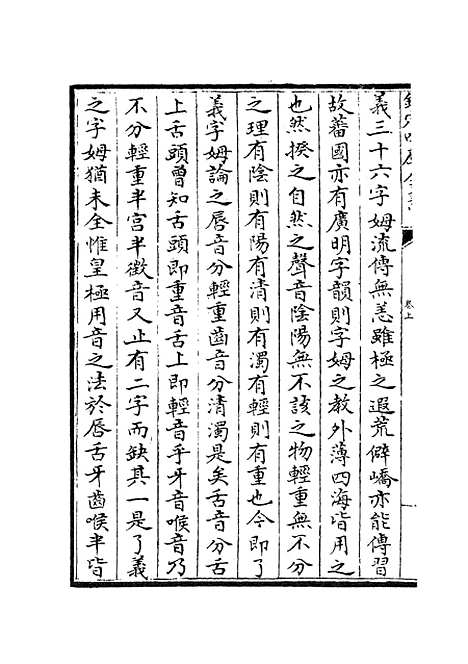 欽定四庫全書
卷上
義三十六字姆流傳無恙雖極之遐荒僻嶠亦能傳習
故蕃國亦有廣明字韻則字姆之教外薄四海皆用之
也然揆之自然之聲音陰陽無不該之物輕重無不分
之理有陰則有陽有清則有濁有輕則有重也今即了
義字姆論之唇音分輕重齒音分清濁是矣舌音分舌
上舌頭曾知舌頭即重音舌上即輕音乎牙音喉音乃
不分輕重半宮半徵音又止有二字而缺其一是了義
之字姆猶未全惟皇極用音之法於唇舌牙齒喉半皆